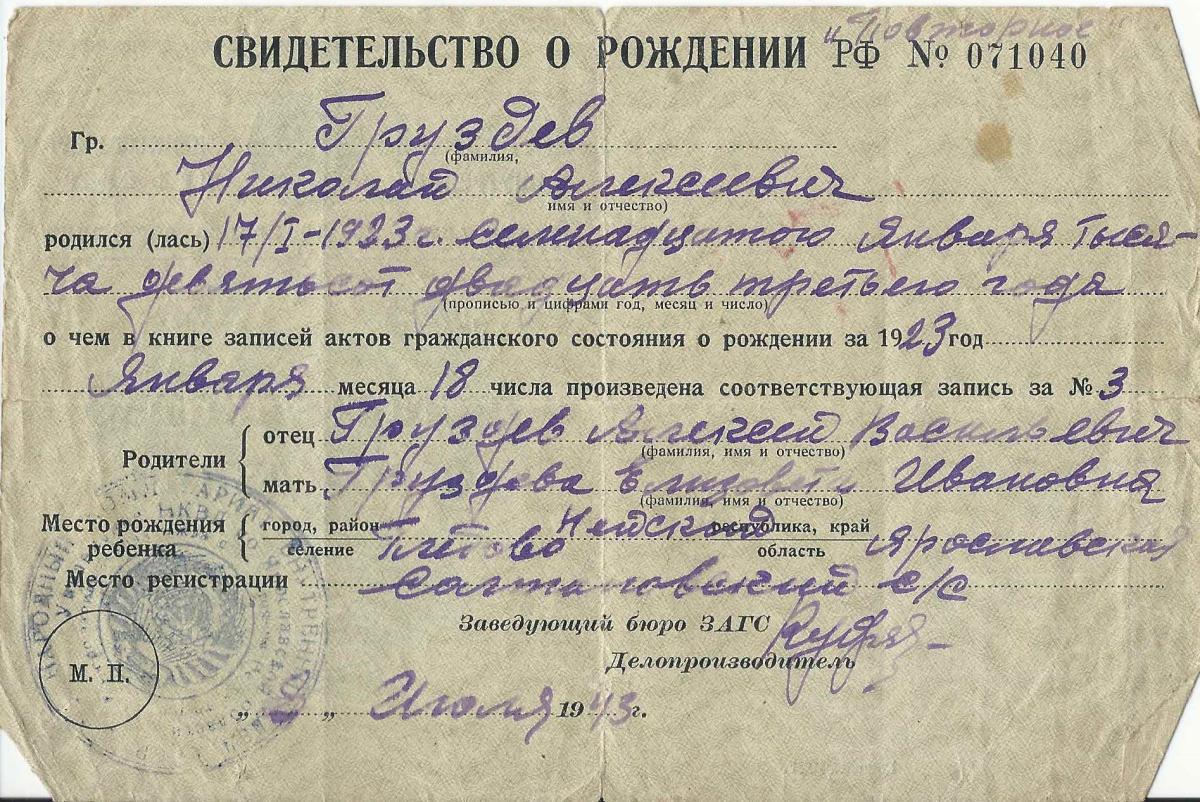 "Повторное"
СВИДЕТЕЛЬСТВО О РОЖДЕНИИ РФ № 071040
Гр. Груздев
(фамилия,
Николай Алексеевич
имя и отчество)
родился (лась) 17/I-1923 г. семнадцатого Января Тыся-
ча девятьсот двадцать третьего года
(прописью и цифрами год, месяц и число)
о чем в книге записей актов гражданского состояния о рождении за 1923 год
Января месяца 18 числа произведена соответствующая запись за № 3
Родители
отец Груздев Алексей Васильевич
(фамилия, имя и отчество)
мать Груздева Елизавета Ивановна
(фамилия, имя и отчество)
Место рождения ребенка
город, район
селение Глебово
республика, край
область Ярославская
Место регистрации с/с
Заведующий бюро ЗАГС
Делопроизводитель
М. П.
" " Июля 1943 г.
НАРОДНЫЙ НКВД